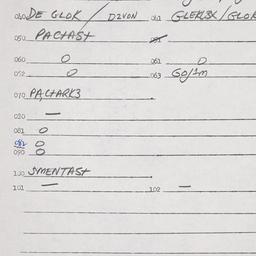 040 DE GLOK / DZVON 041 GLEKL3X / GLOK
050 PACTAST 051
060 0 061 0
052 0 063 Go/1m
070 PACTARK3
080 —
081 0
082 0
090 0
100 SMENTAST
101 — 102 —